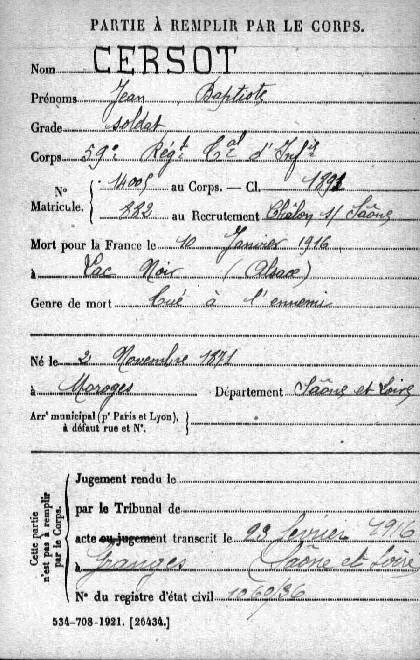 PARTIE À REMPLIR PAR LE CORPS.
Nom CERSOT
Prénoms Jean Baptiste
Grade soldat
Corps 59e Régt Cal d'Infie
N° Matricule. { 14005 au Corps. — Cl. 1891
882 au Recrutement Châlon s/ Saône
Mort pour la France le 10 Janvier 1916
à Lac Noir (Alsace)
Genre de mort Tué à l'ennemi
Né le 2 Novembre 1871
à Moroges Département Saône et Loire
Arrt municipal (pr Paris et Lyon), à défaut rue et N°. }
Cette partie n'est pas à remplir par le Corps. {
Jugement rendu le
par le Tribunal de
acte ou jugement transcrit le 23 février 1916
à Granges Saône et Loire
N° du registre d'état civil 1060/36
534-708-1921. [26434.]